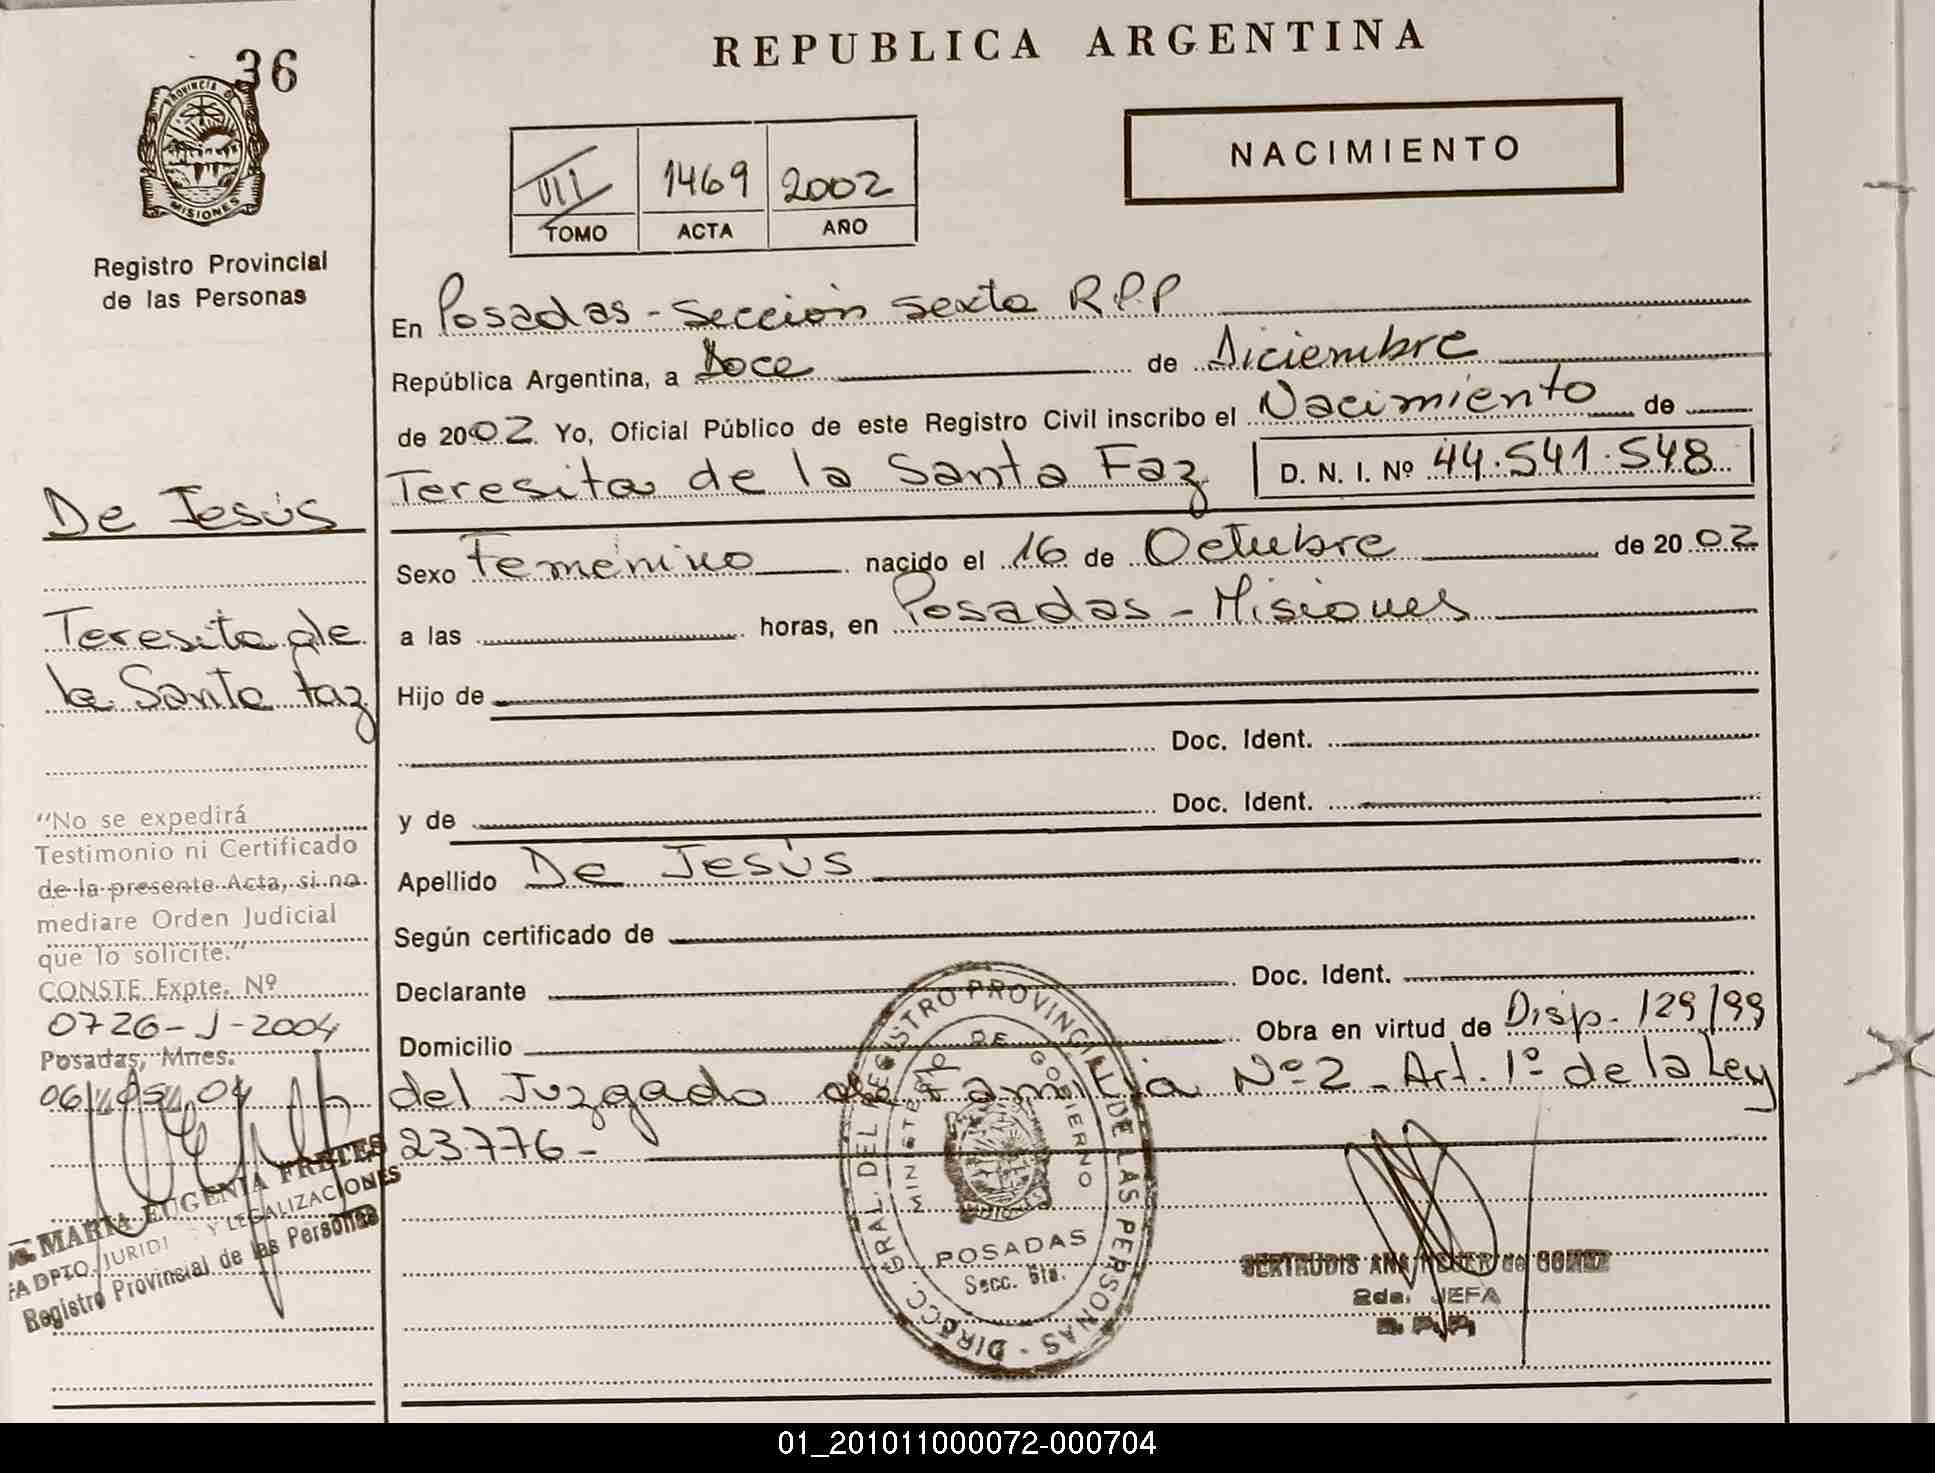 36
PROVINCIA DE
MISIONES
Registro Provincial
de las Personas
REPUBLICA ARGENTINA
NACIMIENTO
VII 1469 2002
TOMO ACTA AÑO
En Posadas - Sección Sexta R.P.P
República Argentina, a Doce de Diciembre
de 2002. Yo, Oficial Público de este Registro Civil inscribo el Nacimiento de
Teresita de la Santa Faz D. N. I. Nº 44.541.548
Sexo Femenino nacido el 16 de Octubre de 2002
a las horas, en Posadas - Misiones
Hijo de
Doc. Ident.
y de Doc. Ident.
Apellido De Jesús
Según certificado de
Declarante Doc. Ident.
Domicilio Obra en virtud de Disp. 129/99
del Juzgado de Familia Nº 2 - Art. 1º de la Ley
23.776 -
De Jesús
Teresita de
la Santa Faz
"No se expedirá
Testimonio ni Certificado
de la presente Acta, si no
mediare Orden Judicial
que lo solicite."
CONSTE Expte. Nº
0726-J-2004
Posadas, Mnes.
06/05/04
MARIA EUGENIA FRETES
DPTO. JURIDI Y LEGALIZACIONES
Registro Provincial de las Personas
DIRECC. GRAL. DEL REGISTRO PROVINCIAL DE LAS PERSONAS -
MINISTERIO DE GOBIERNO
POSADAS
Secc. 6ta.
GERTRUDIS ANA de GOMEZ
2da. JEFA
R. P. P.
01_201011000072-000704